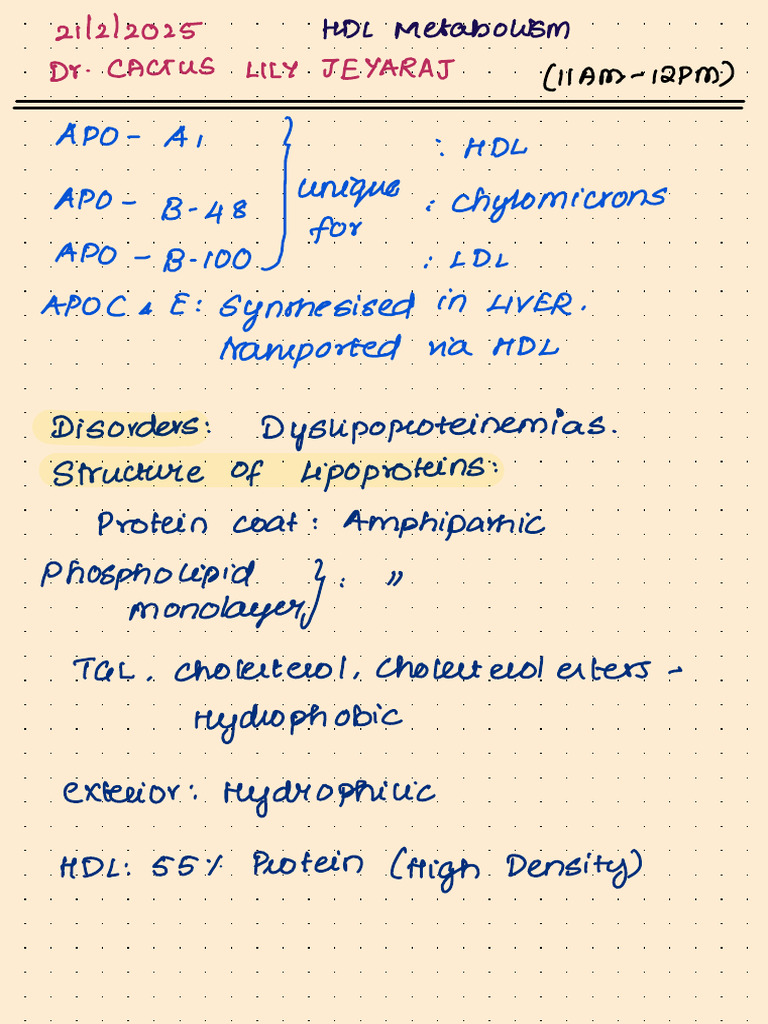 21/2/2025 HDL Metabolism
Dr. CACTUS LILY JEYARAJ (11AM-12PM)
APO - A1 : HDL
APO - B-48 } unique for : Chylomicrons
APO - B-100 : LDL
APO C & E: Synthesised in LIVER.
transported via HDL
Disorders: Dyslipoproteinemias.
Structure of Lipoproteins:
Protein coat : Amphipathic
Phospholipid } : "
monolayer
TGL, cholesterol, cholesterol esters -
Hydrophobic
exterior: Hydrophilic
HDL: 55% Protein (High Density)